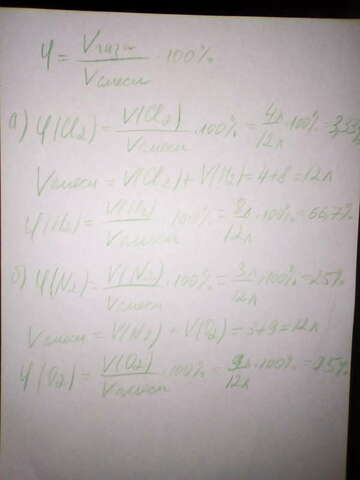 φ = Vгаза / Vсмеси · 100%
а) φ(Cl2) = V(Cl2) / Vсмеси · 100% = 4л / 12л · 100% = 3,33%
Vсмеси = V(Cl2) + V(H2) = 4+8 = 12л
φ(H2) = V(H2) / Vсмеси · 100% = 8л / 12л · 100% = 66,7%
б) φ(N2) = V(N2) / Vсмеси · 100% = 3л / 12л · 100% = 25%
Vсмеси = V(N2) + V(O2) = 3+9 = 12л
φ(O2) = V(O2) / Vсмеси · 100% = 9л / 12л · 100% = 25%